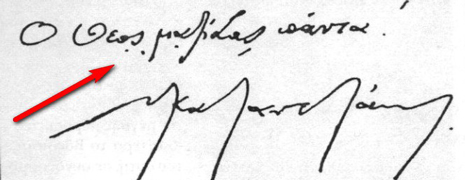 Ο Θεος μαζί σας πάντα.
ΝΚαζαντζάκης